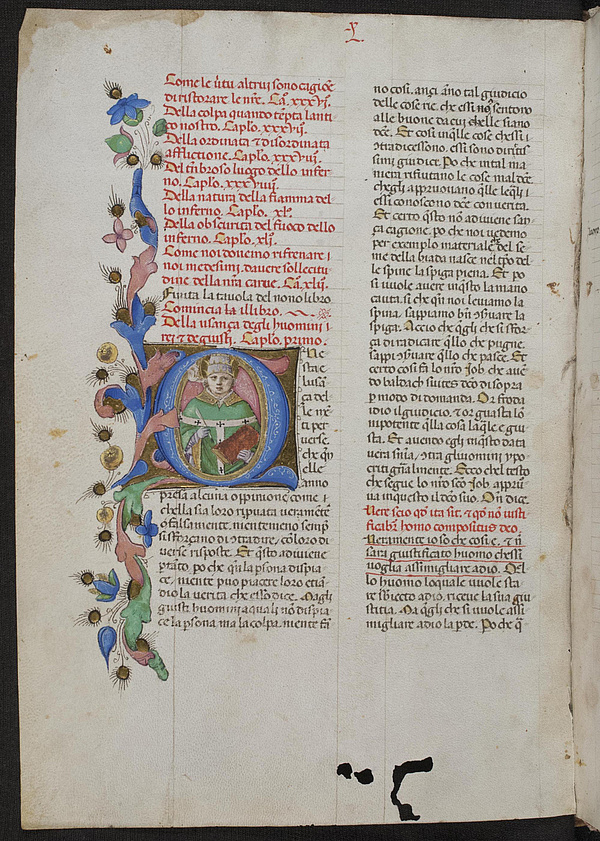 X
Come le v̄tu altrui sono cagiōe
di ristorare le nr̄e. Ca. xxxvi.
Della colpa quando tēpta lanti
co nostro. Caplo. xxxvii.
Della ordinata & disordinata
afflictione. Caplo. xxxviii.
Del tn̄broso luogo dello infer
no. Caplo. xxxviiii.
Della natura della fiamma del
lo inferno. Caplo. xl.
Della obscurita del fuoco dello
inferno. Caplo. xli.
Come noi dovemo rifrenare i
noi medesimi, davere sollecitu
dine della nr̄a carne. Ca. xlii.
Finita la tavola del nono libro
Comincia la illibro.
Della usança degli huomini i
rei & de giusti. Caplo. primo.
Q
ue
sta e
lusā
ça del
le mē
ti per
verse
che qn̄
elle
anno
presa alcuna oppinione come i
chella sia loro riputata veramēte
o falsamente, nientemeno semp̄
si sforçano di 9tradire, coloro di
verse risposte. Et q̄sto adiviene
p̄ che q̄n la p̄sona dispia
ce, niente può piacere loro etiā
dio la verita che essi dice. Ma gli
giusti huomini a quali nō dispia
ce la p̄sona, ma la colpa, niente
no cosi. ançi āno tal giudicio
delle cose rie, che essi nō sentono
alle buone da cui chelle siano
dc̄e. Et cosi in q̄lle cose chessi i
9tradicessono, essi sono diritis
simi giudice. Po che in tal ma
niera rifiutano le cose mal dc̄e
chegli approvano q̄lle leq̄li i
essi conoscono dc̄e con verita.
Et certo q̄sto nō adiviene san
ça cagione, po che noi vedemo
per exemplo materiale, del se
me della biada nasce nel tp̄o del
le spine la spiga piena. Et po
si vuole avere in q̄sto la mano
cauta, si che q̄n noi leviamo la
spina, sappiamo bn̄ 9servare la
spiga. Accio che q̄gli che si sfor
ça di radicare q̄llo che pugne,
sappi 9servare q̄llo che pasce. Et
certo cosi fa lo nr̄o Job che avē
do baldach suites dc̄o di sopra
p modo di domanda. Or froda
idio il giudicio, & or guasta lo ni
potente q̄lla cosa laq̄le e giu
sta. Et avendo egli in q̄sto data
vera snīa, 9tra gli uomini ypo
criti gnāl mente. Ecco chel testo
che segue lo nr̄o sc̄o Job appru
va in questo il dc̄o suo. On dice.
Vere scio q̄d ita sit, & q̄d nō iusti
ficabit̄ homo compositus deo.
Veramente io so che cosi e, & n̄
sara giustificato huomo chessi
voglia assimigliare a dio. Q̄l
lo huomo loquale vuole sta
re sub̄iecto a dio, riceve la sua giu
stitia. Ma q̄gli che si vuole assi
migliare a dio la p̄de. Po che q̄